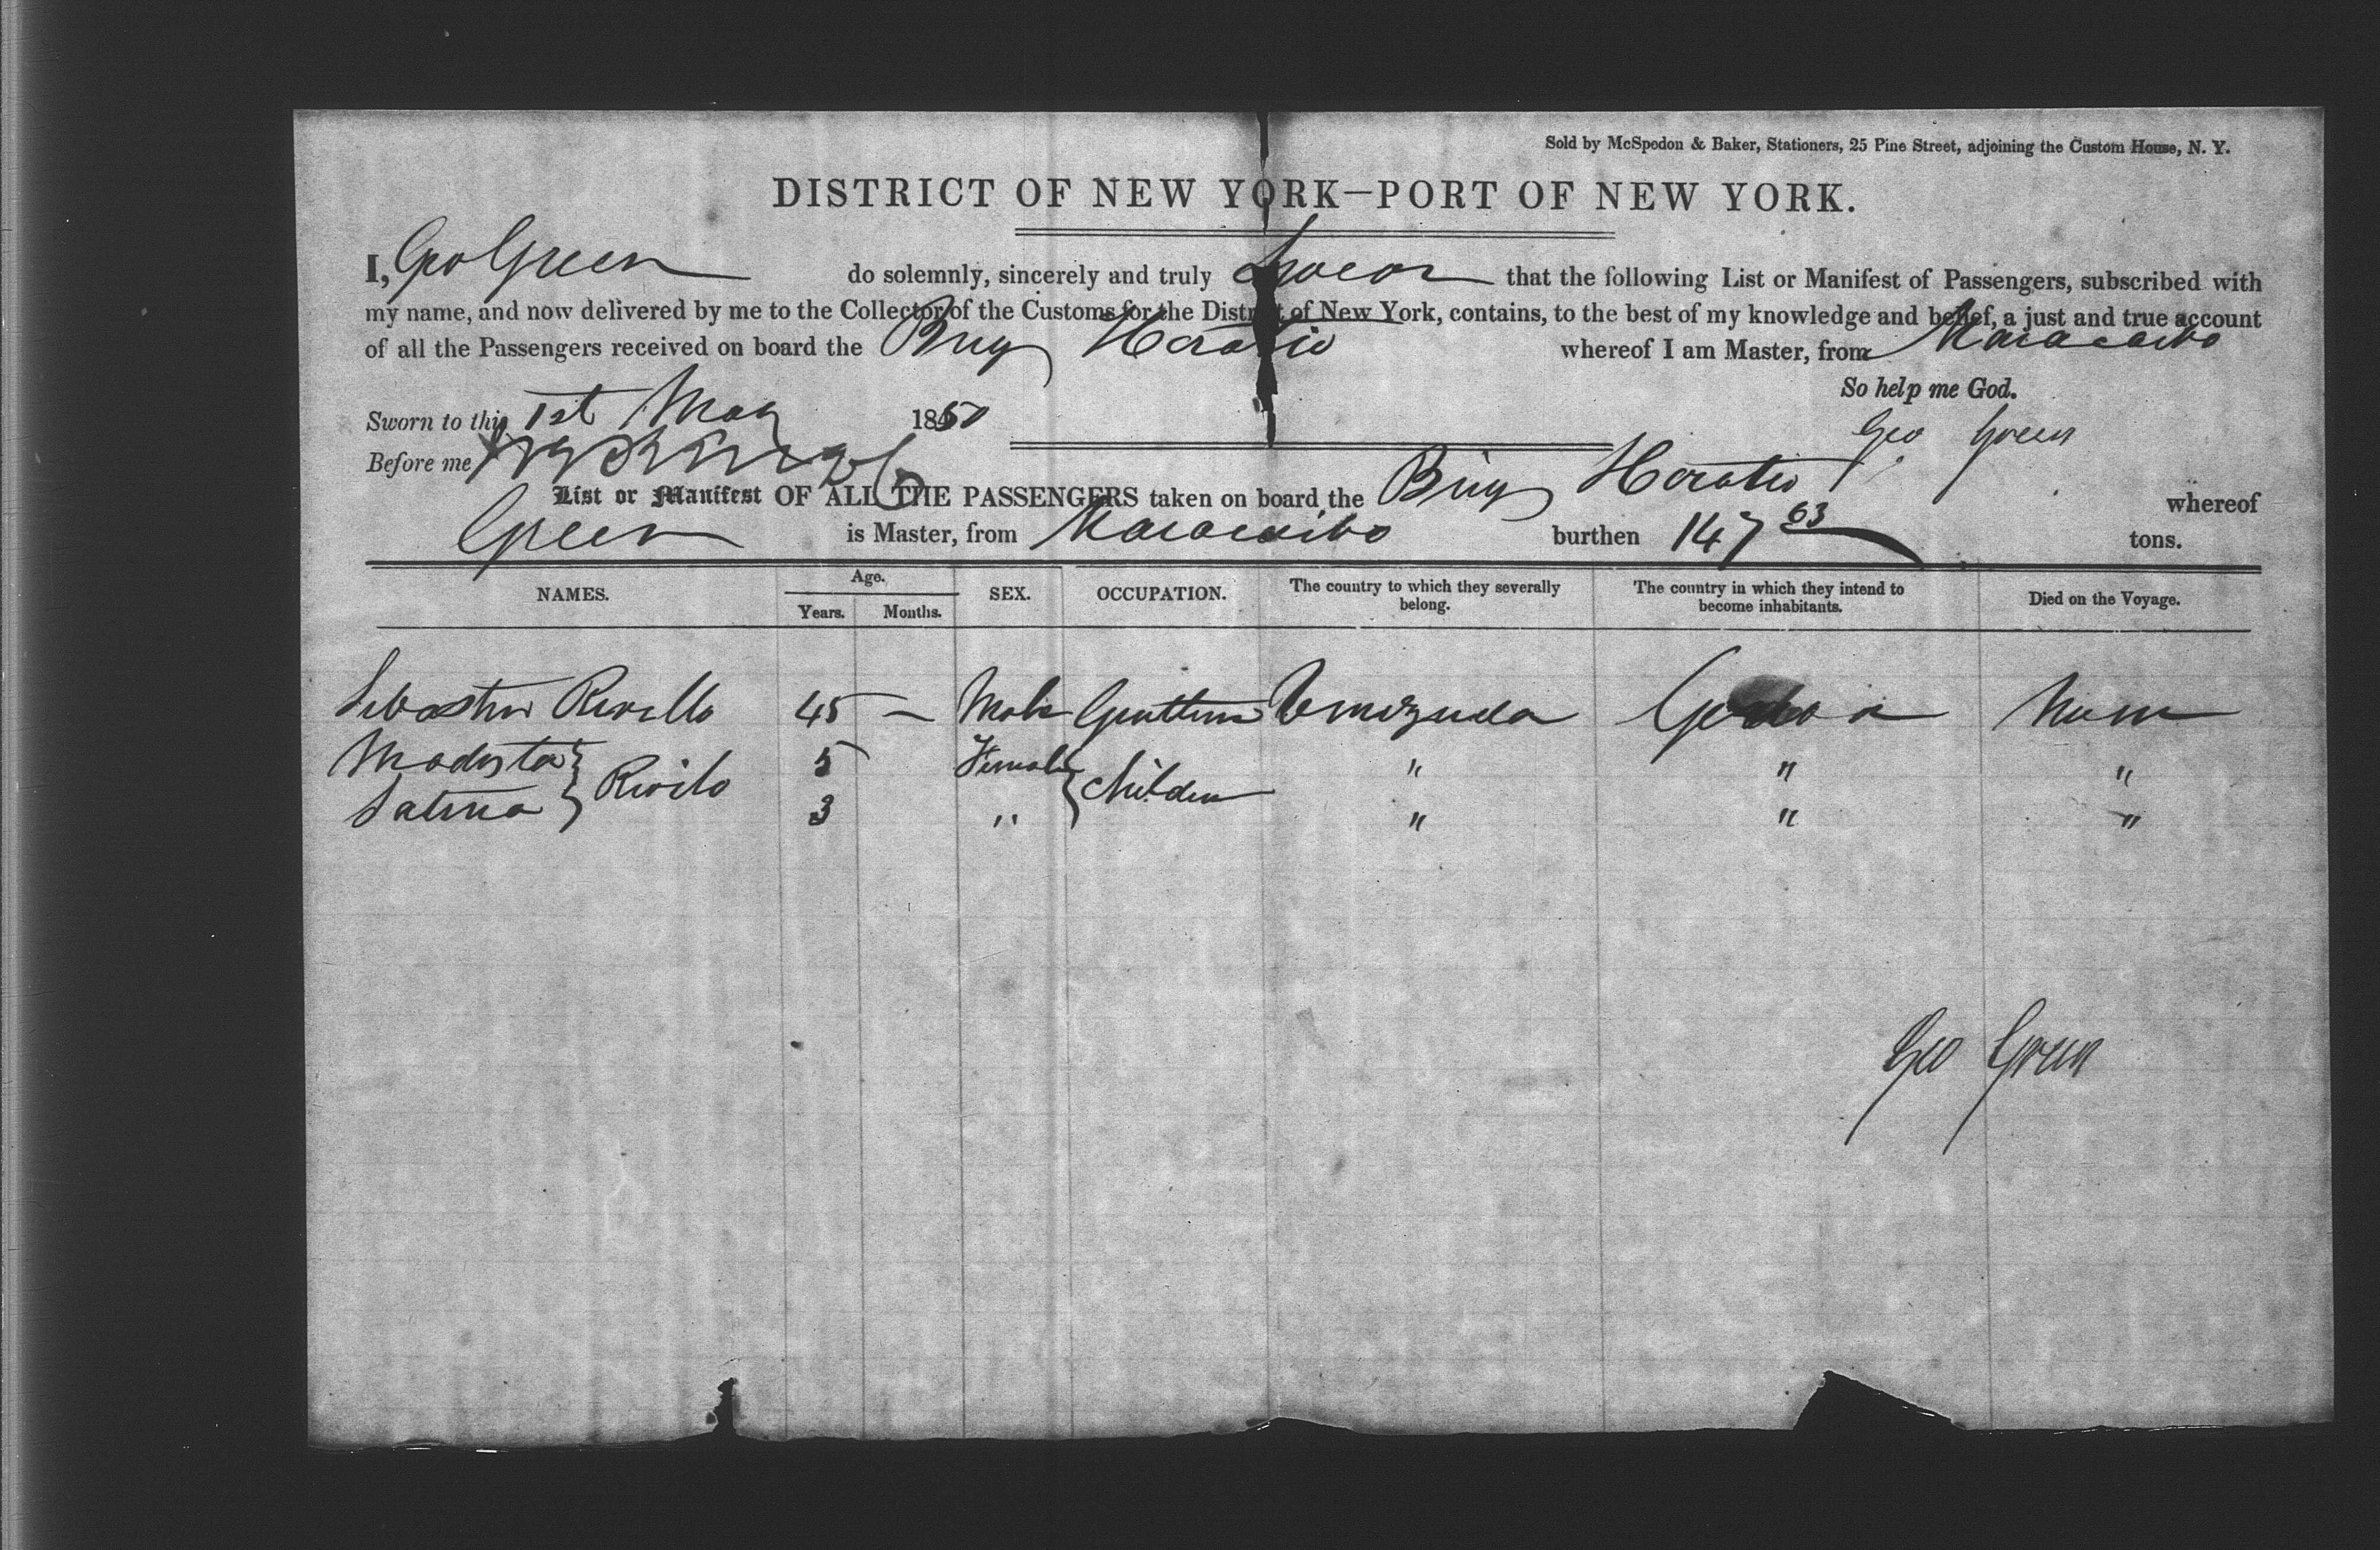 Sold by McSpedon & Baker, Stationers, 25 Pine Street, adjoining the Custom House, N. Y.
DISTRICT OF NEW YORK—PORT OF NEW YORK.
I, Geo Green do solemnly, sincerely and truly Swear that the following List or Manifest of Passengers, subscribed with
my name, and now delivered by me to the Collector of the Customs for the District of New York, contains, to the best of my knowledge and belief, a just and true account
of all the Passengers received on board the Brig Horatio whereof I am Master, from Maracaibo
So help me God.
Sworn to this 1st May 1850
Geo Green
Before me
List or Manifest OF ALL THE PASSENGERS taken on board the Brig Horatio whereof
Green is Master, from Maracaibo burthen 147 63 tons.
NAMES. Age. Years. Months. SEX. OCCUPATION. The country to which they severally belong. The country in which they intend to become inhabitants. Died on the Voyage.
Sebastin Rivello 45 — Male Venezuela None
Modesta } Rivilo 5 Female } Children " " "
3 " " " "
Geo Green